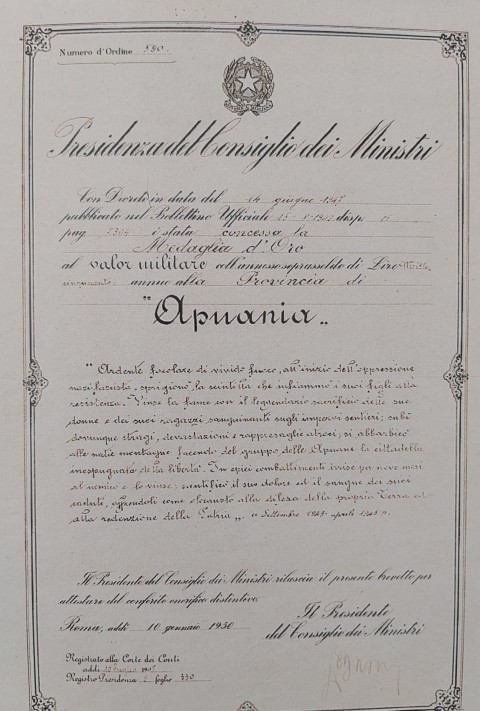 Numero d'Ordine 590.
Presidenza del Consiglio dei Ministri
Con Decreto in data del 14 giugno 1947
pubblicato nel Bollettino Ufficiale disp.
pag. 2304 è stata concessa la
Medaglia d'Oro
al valor militare coll'annesso soprassoldo di Lire
annue alla Provincia di
"Apuania„
"Ardente focolare di vivido fuoco, all'inizio dell'oppressione
nazifascista, sprigionò la scintilla che infiammò i suoi figli alla
resistenza. Vinse la fame con il leggendario sacrificio delle sue
donne e dei suoi ragazzi sanguinanti sugli impervi sentieri; subì
dovunque stragi, devastazioni e rappresaglie atroci; si abbarbicò
alle natie montagne facendo del gruppo delle Apuane la cittadella
inespugnata della libertà. In epici combattimenti irrise per nove mesi
al nemico e lo vinse; santificò il suo dolore ed il sangue dei suoi
caduti, offrendoli come olocausto alla difesa della propria Terra ed
alla redenzione della Patria„. Settembre aprile 1945
Il Presidente del Consiglio dei Ministri rilascia il presente brevetto per
attestare del conferito onorifico distintivo.
Roma, addì 10 gennaio 1950
Il Presidente
del Consiglio dei Ministri
Registrato alla Corte dei Conti
addì
Registro Presidenza foglio 330